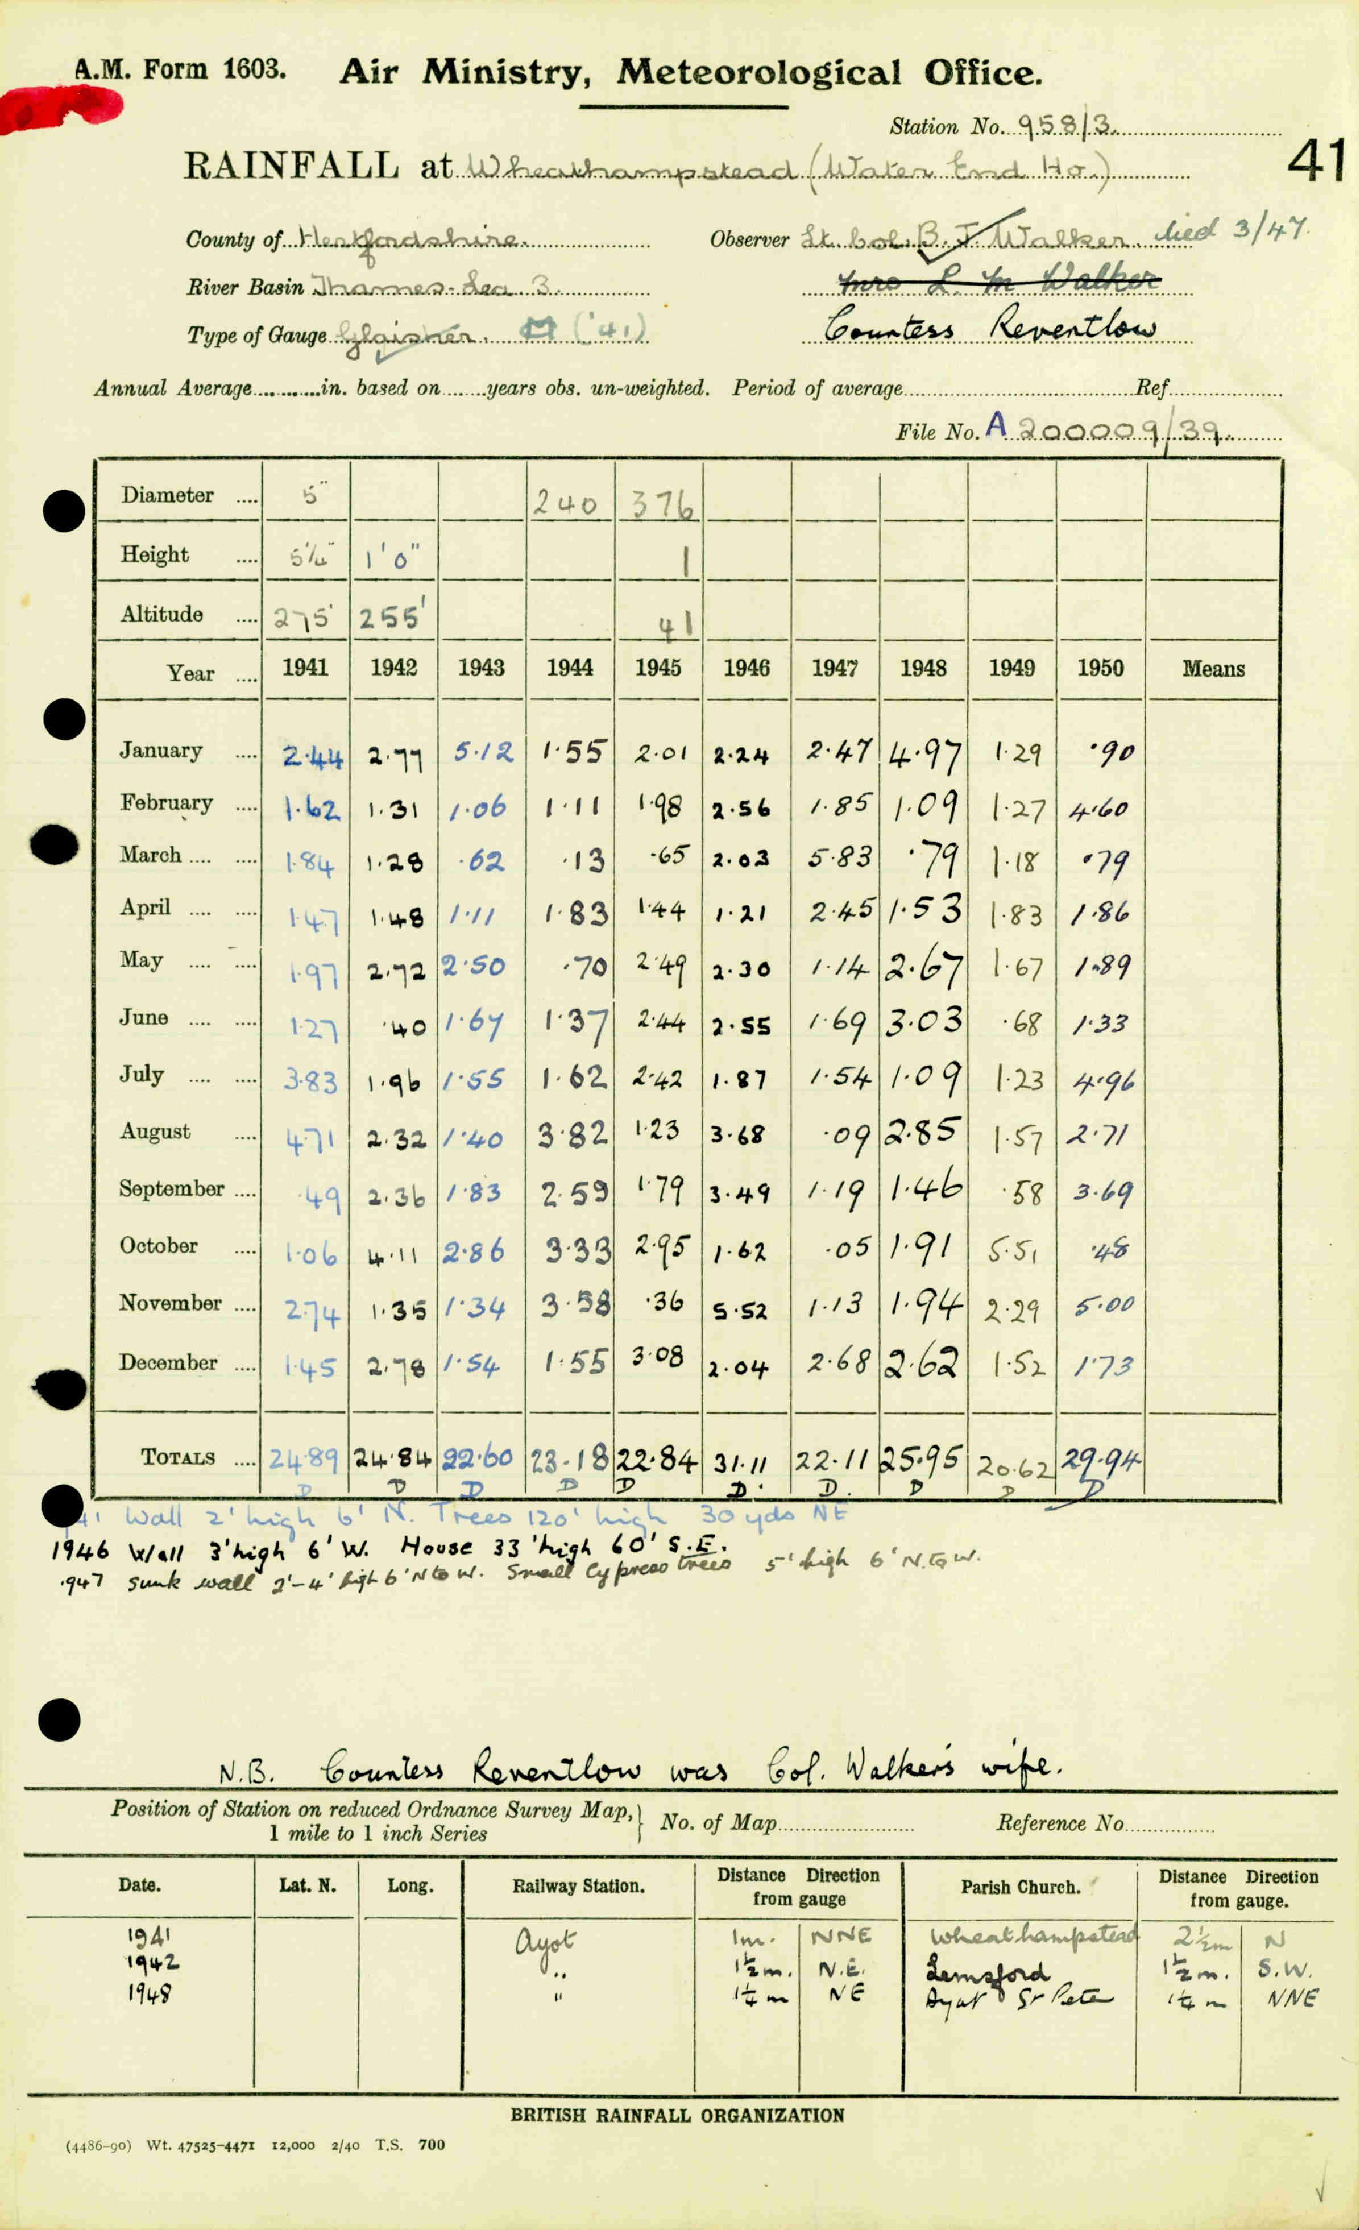 A.M. Form 1603. Air Ministry, Meteorological Office.
Station No. 958/3.
RAINFALL at Wheathampstead (Water End Ho.) 41
County of Hertfordshire. Observer Lt. Col. B. J. Walker. died 3/47.
River Basin Thames-Lea 3. Mrs L. M Walker
Type of Gauge Glaisher. M ('41) Countess Reventlow
Annual Average in. based on years obs. un-weighted. Period of average Ref
File No. A 200009/39.
Diameter 5" 240 376
Height 5¼" 1'0" 1
Altitude 275' 255' 41
Year 1941 1942 1943 1944 1945 1946 1947 1948 1949 1950 Means
January 2.44 2.77 5.12 1.55 2.01 2.24 2.47 4.97 1.29 .90
February 1.62 1.31 1.06 1.11 1.98 2.56 1.85 1.09 1.27 4.60
March 1.84 1.28 .62 .13 .65 2.03 5.83 .79 1.18 .79
April 1.47 1.48 1.11 1.83 1.44 1.21 2.45 1.53 1.83 1.86
May 1.97 2.72 2.50 .70 2.49 2.30 1.14 2.67 1.67 1.89
June 1.27 .40 1.67 1.37 2.44 2.55 1.69 3.03 .68 1.33
July 3.83 1.96 1.55 1.62 2.42 1.87 1.54 1.09 1.23 4.96
August 4.71 2.32 1.40 3.82 1.23 3.68 .09 2.85 1.57 2.71
September .49 2.36 1.83 2.59 1.79 3.49 1.19 1.46 .58 3.69
October 1.06 4.11 2.86 3.33 2.95 1.62 .05 1.91 5.51 .48
November 2.74 1.35 1.34 3.58 .36 5.52 1.13 1.94 2.29 5.00
December 1.45 2.78 1.54 1.55 3.08 2.04 2.68 2.62 1.52 1.73
TOTALS 24.89 24.84 22.60 23.18 22.84 31.11 22.11 25.95 20.62 29.94
D D D D D D. D. D D D
41 Wall 2' high 6' N. Trees 120' high 30 yds NE
1946 Wall 3' high 6' W. House 33' high 60' S.E.
1947 Sunk wall 2'-4' high 6' N to W. Small Cypress trees 5' high 6' N. to W.
N.B. Countess Reventlow was Col. Walker's wife.
Position of Station on reduced Ordnance Survey Map, 1 mile to 1 inch Series } No. of Map Reference No
Date. Lat. N. Long. Railway Station. Distance Direction from gauge Parish Church. Distance Direction from gauge.
1941 Ayot 1m. NNE Wheathampstead 2½m N
1942 " 1½m. N.E. Lemsford 1½m. S.W.
1948 " 1¼m NE Ayot St Peter 1¼m NNE
BRITISH RAINFALL ORGANIZATION
(4486-90) Wt. 47525-4471 12,000 2/40 T.S. 700